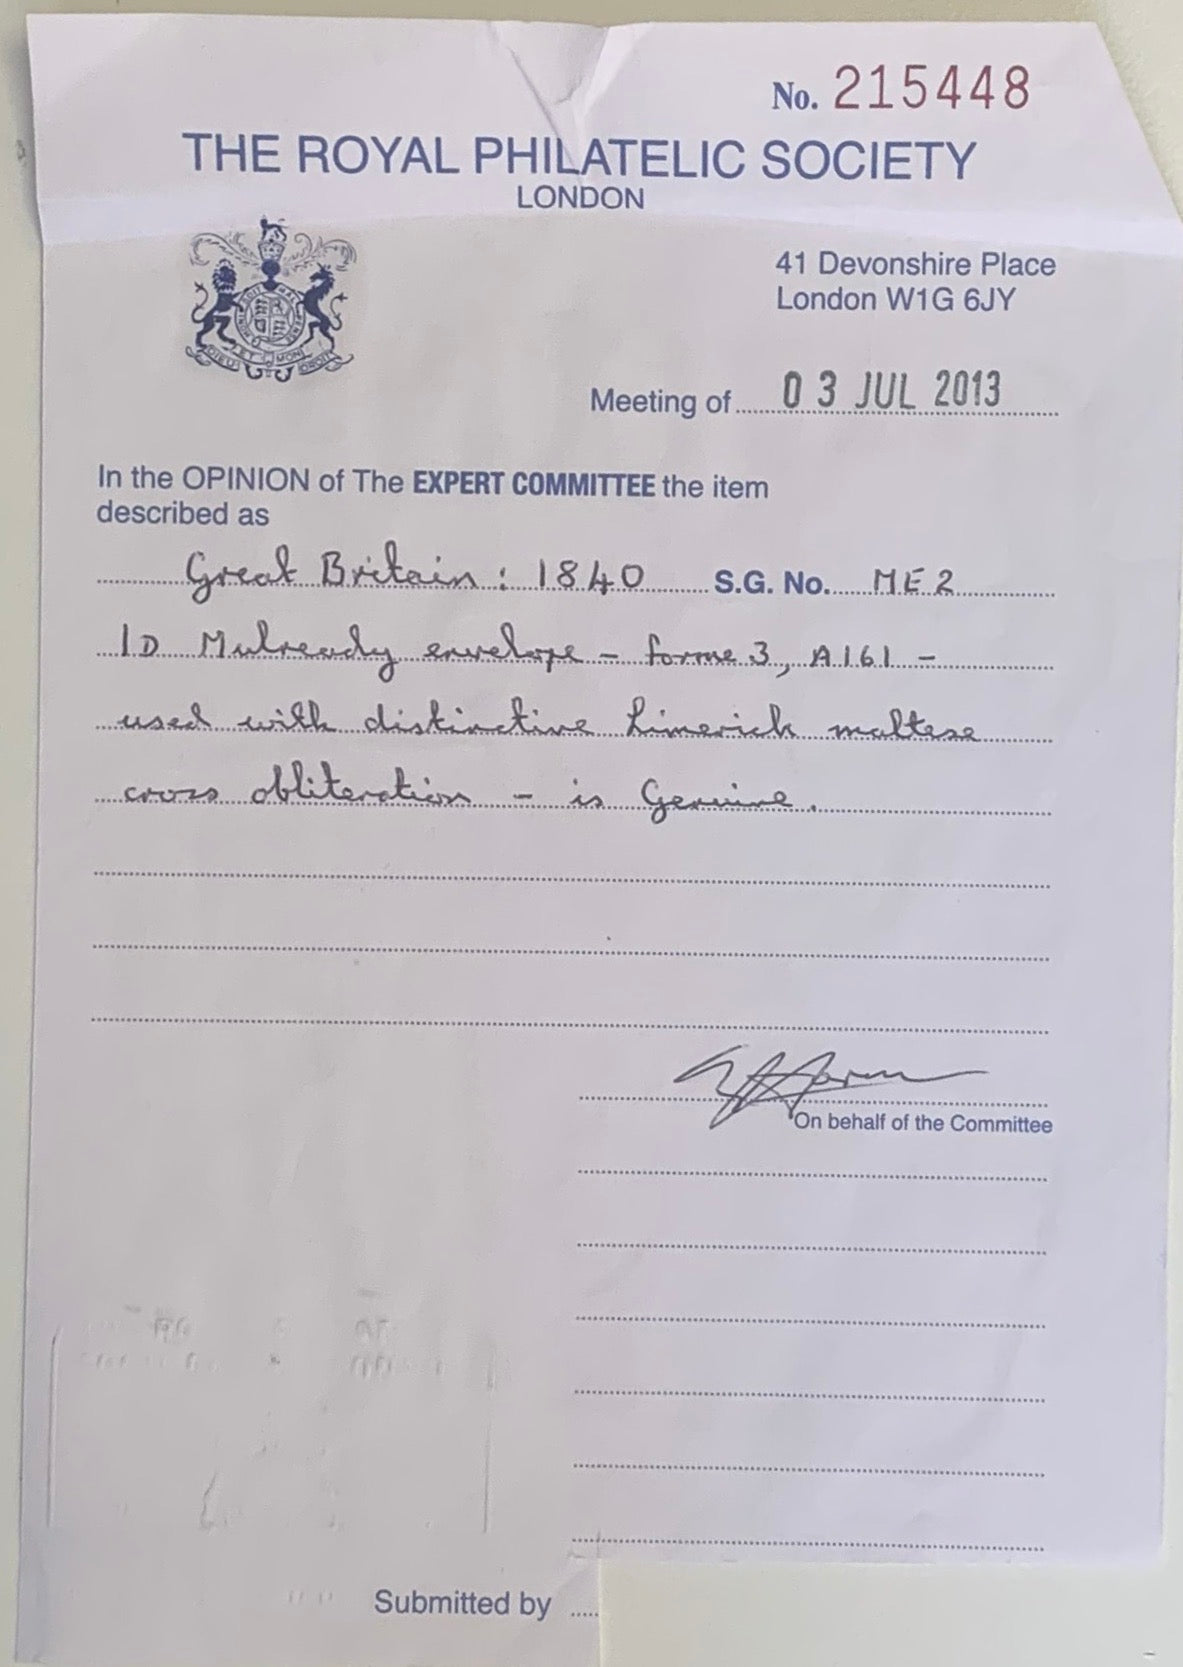 No. 215448
THE ROYAL PHILATELIC SOCIETY
LONDON
41 Devonshire Place
London W1G 6JY
DIEU ET MON DROIT
Meeting of 03 JUL 2013
In the OPINION of The EXPERT COMMITTEE the item
described as
Great Britain: 1840 S.G. No. ME2
1D Mulready envelope - forme 3, A161 -
used with distinctive Limerick maltese
cross obliteration - is Genuine.
On behalf of the Committee
Submitted by